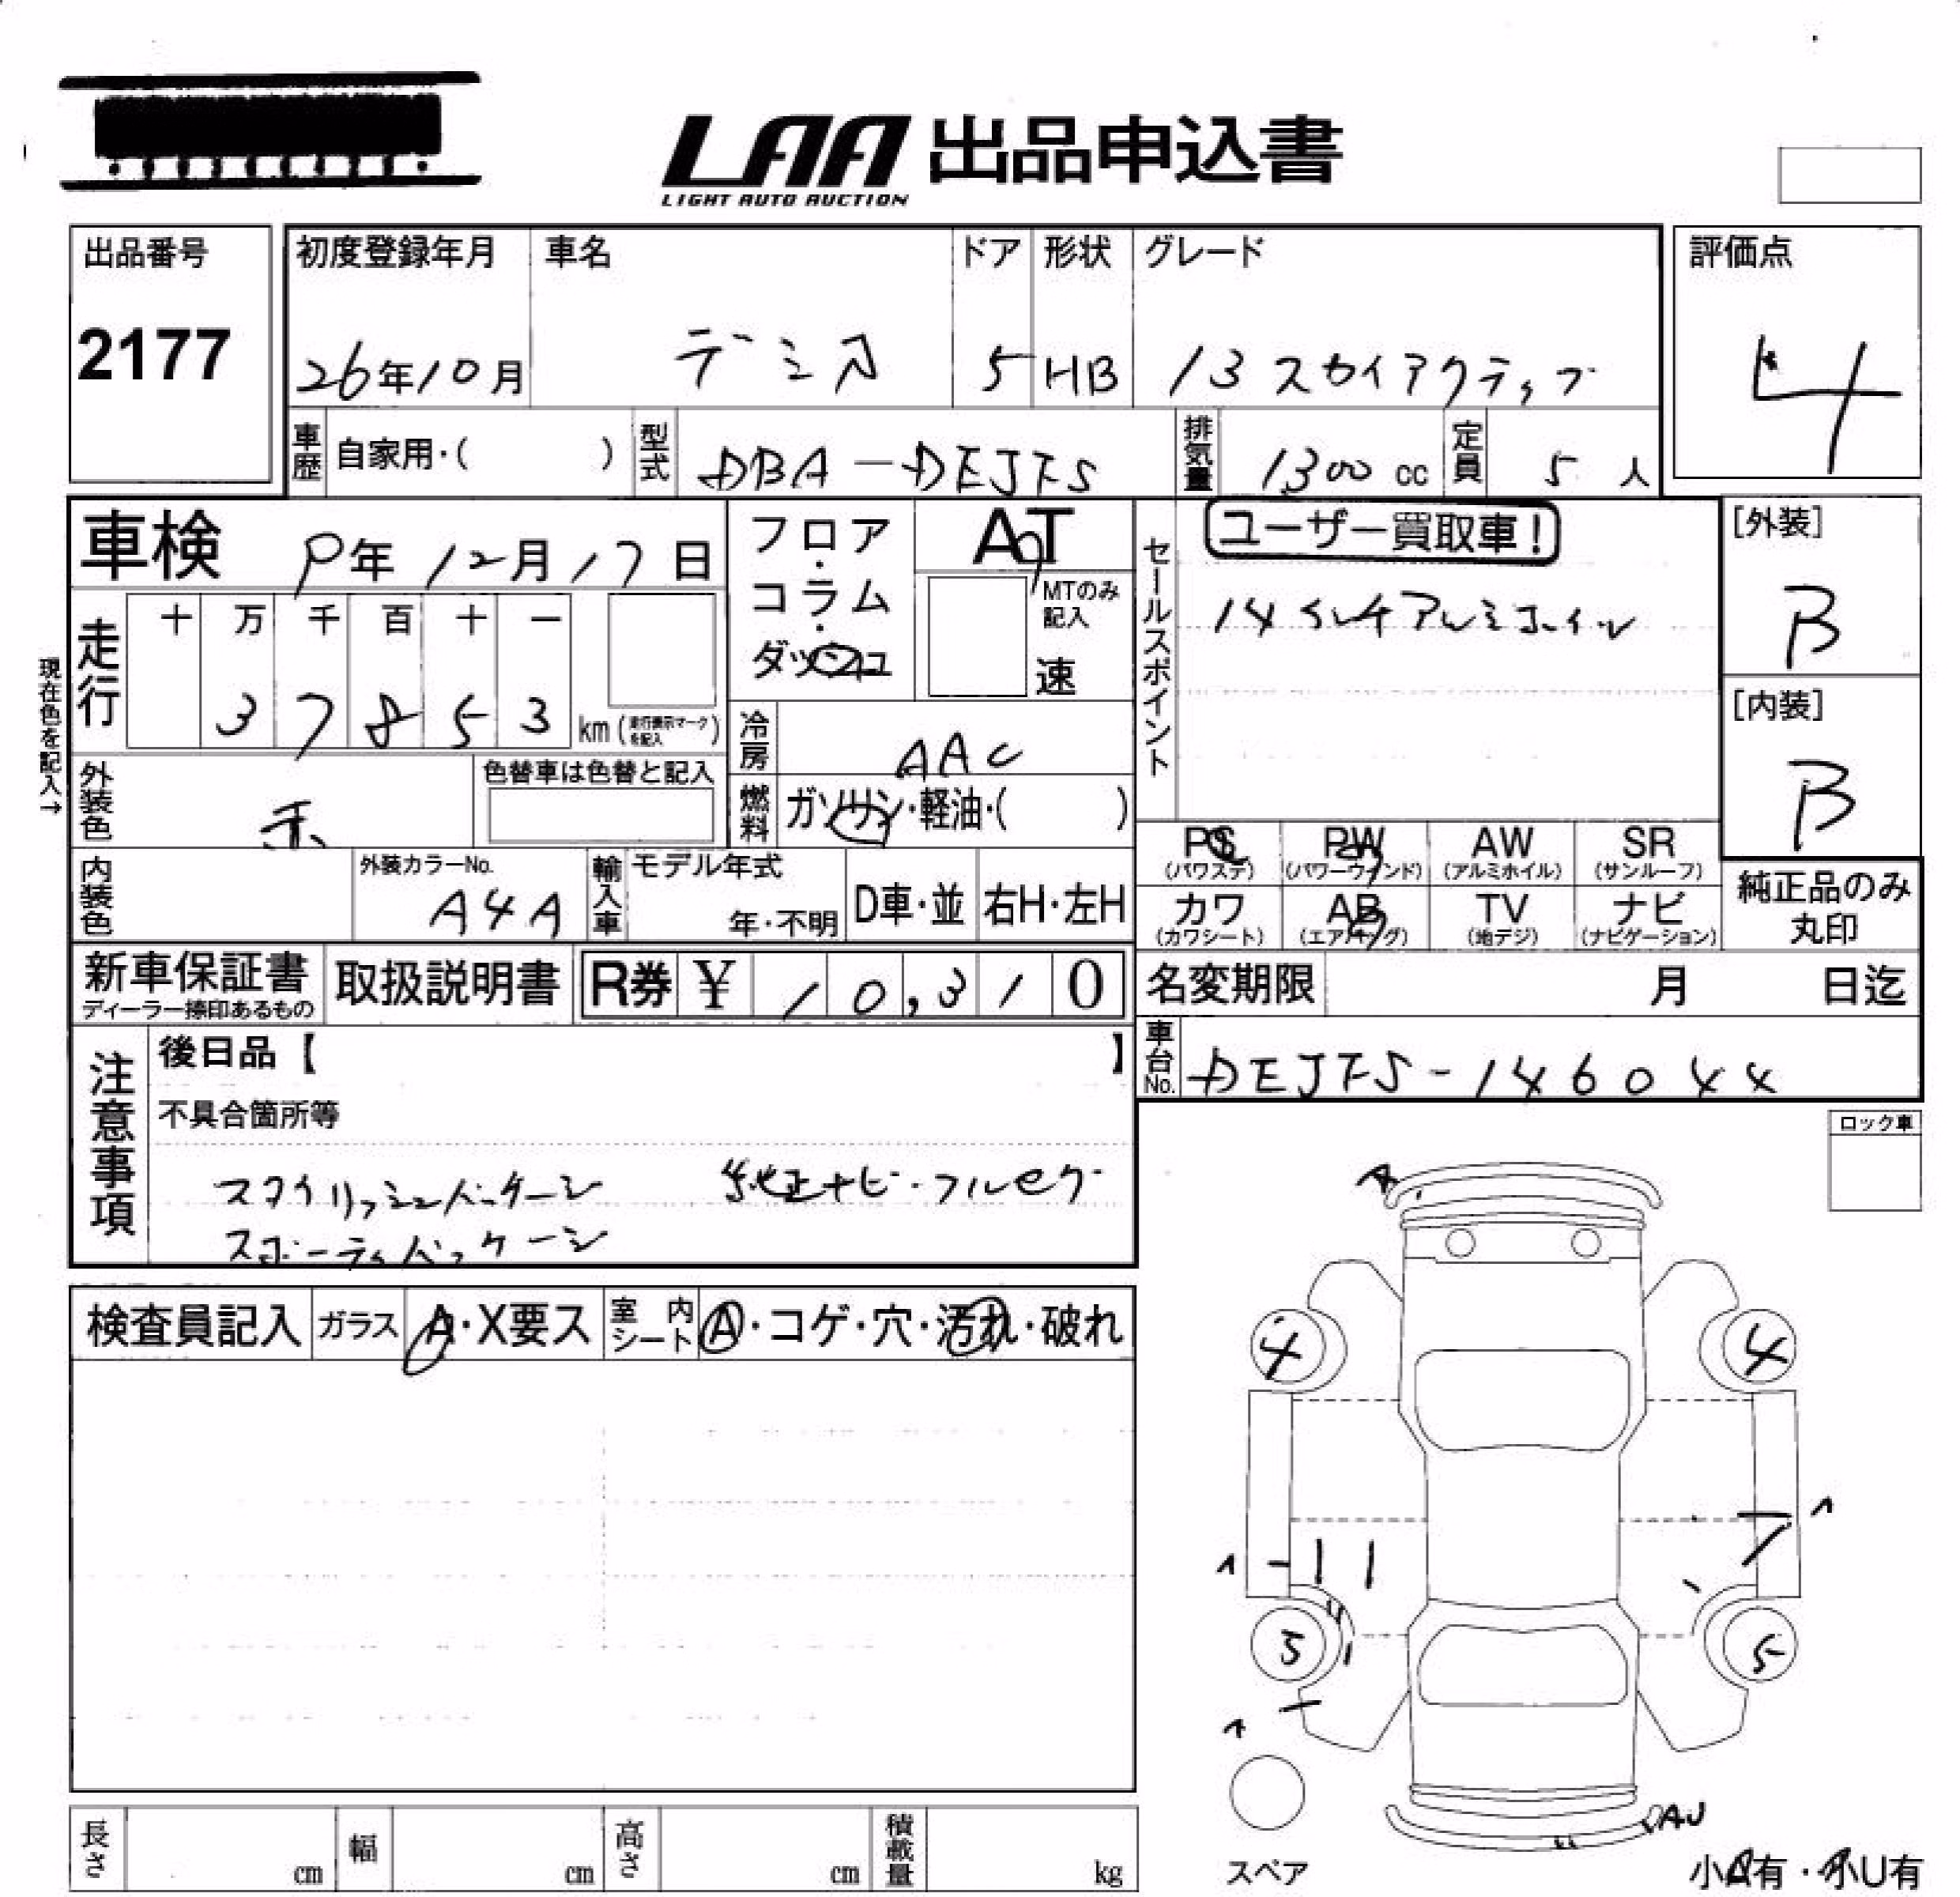 LAA 出品申込書
LIGHT AUTO AUCTION
出品番号
2177
初度登録年月
26年10月
車名
デミオ
ドア
5
形状
HB
グレード
13 スカイアクティブ
評価点
4
車歴 自家用・( )
型式 DBA-DEJFS
排気量 1300 cc
定員 5 人
車検 9年12月17日
フロア・コラム・ダッシュ
AT
MTのみ記入
速
セールスポイント
ユーザー買取車!
14インチアルミホイール
[外装]
B
[内装]
B
現在色を記入→
走行 十 万 千 百 十 一
3 7 8 5 3 km (走行表示マークを記入)
冷房 AAC
燃料 ガソリン・軽油・( )
外装色 赤
色替車は色替と記入
内装色
外装カラーNo.
A4A
輸入車 モデル年式
年・不明
D車・並
右H・左H
PS (パワステ)
PW (パワーウインド)
AW (アルミホイル)
SR (サンルーフ)
カワ (カワシート)
AB (エアバッグ)
TV (地デジ)
ナビ (ナビゲーション)
純正品のみ丸印
新車保証書
ディーラー捺印あるもの
取扱説明書
R券 ¥ 10,310
名変期限 月 日迄
車台No. DEJFS-146044
注意事項
後日品【 】
不具合箇所等
スタイリッシュパッケージ 純正ナビ・フルセグ
スポーティパッケージ
ロック車
検査員記入
ガラス A・X要ス
室内シート A・コゲ・穴・汚れ・破れ
A
4 4
5 5
AU
スペア
小A有・小U有
長さ cm
幅 cm
高さ cm
積載量 kg